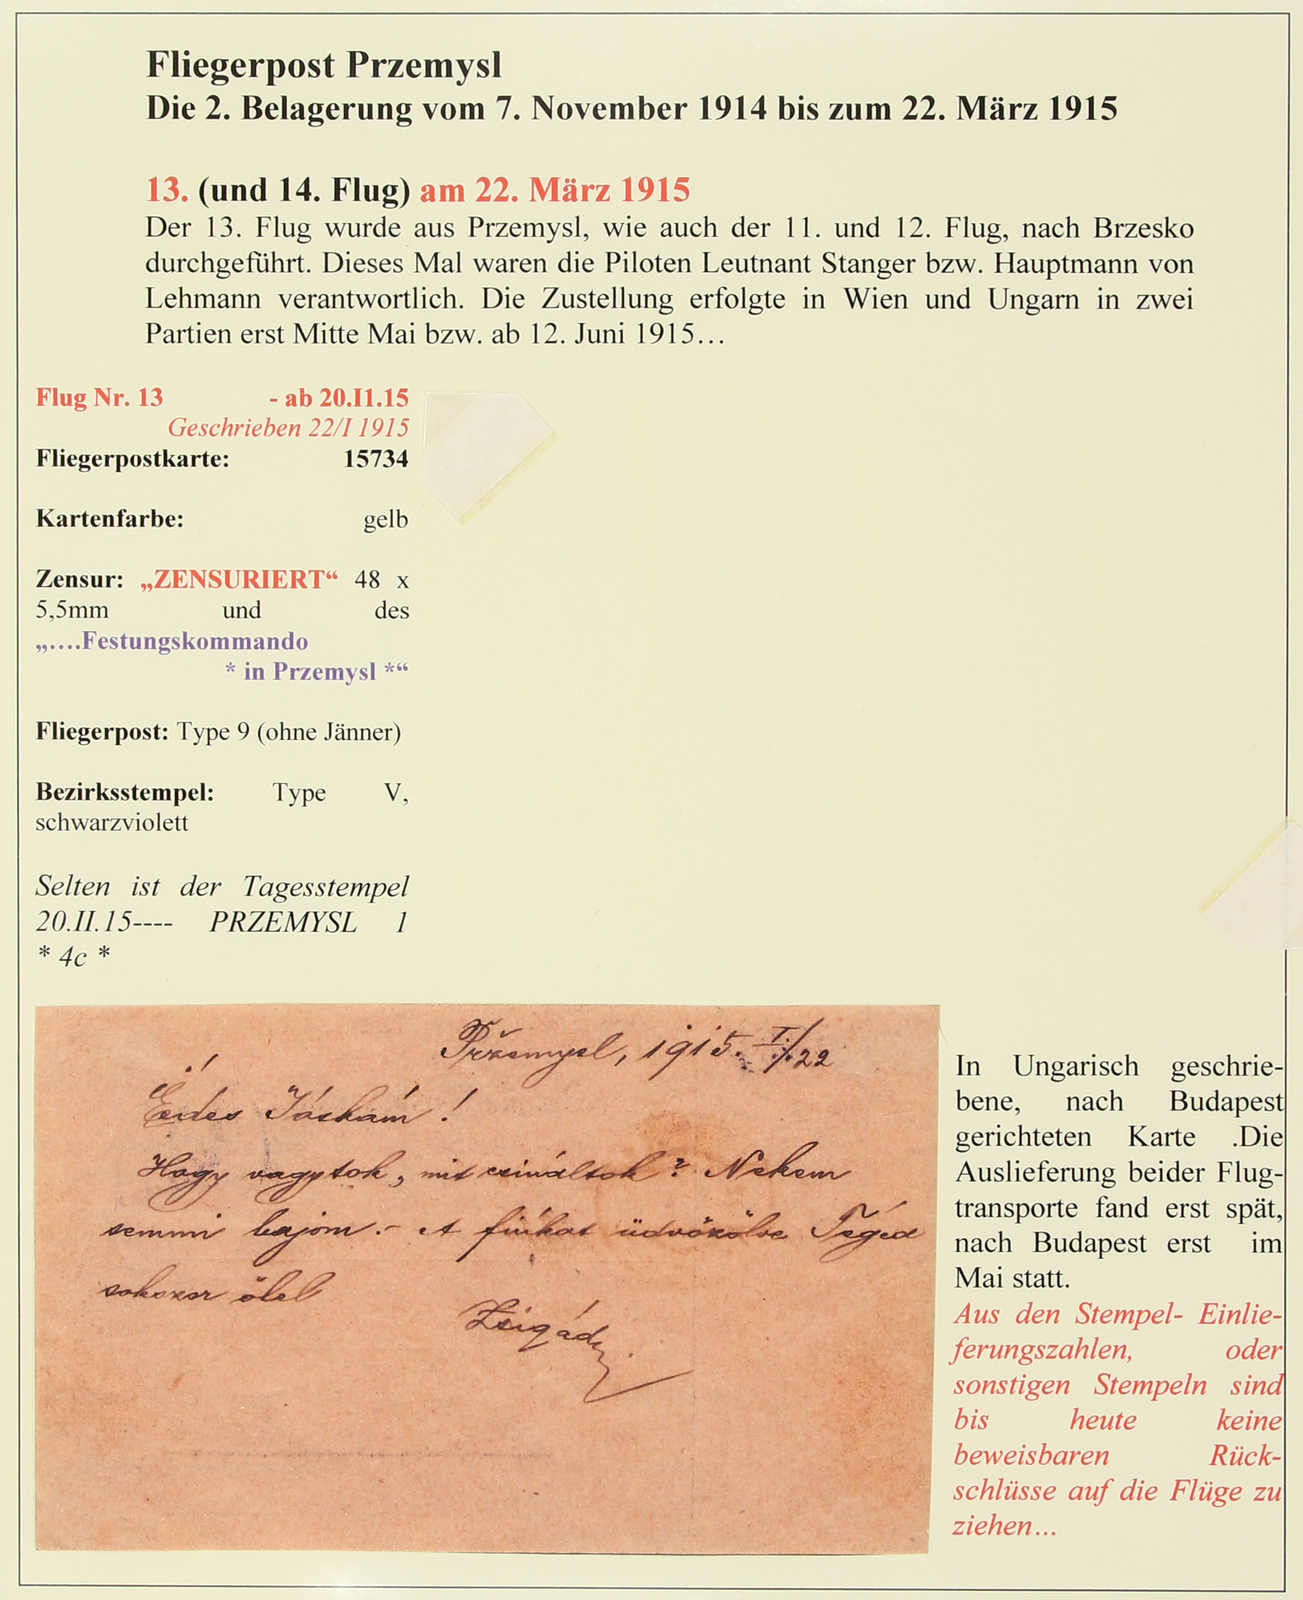 Fliegerpost Przemysl
Die 2. Belagerung vom 7. November 1914 bis zum 22. März 1915
13. (und 14. Flug) am 22. März 1915
Der 13. Flug wurde aus Przemysl, wie auch der 11. und 12. Flug, nach Brzesko
durchgeführt. Dieses Mal waren die Piloten Leutnant Stanger bzw. Hauptmann von
Lehmann verantwortlich. Die Zustellung erfolgte in Wien und Ungarn in zwei
Partien erst Mitte Mai bzw. ab 12. Juni 1915…
Flug Nr. 13 - ab 20.I1.15
Geschrieben 22/I 1915
Fliegerpostkarte: 15734
Kartenfarbe: gelb
Zensur: „ZENSURIERT“ 48 x
5,5mm und des
„….Festungskommando
* in Przemysl *“
Fliegerpost: Type 9 (ohne Jänner)
Bezirksstempel: Type V,
schwarzviolett
Selten ist der Tagesstempel
20.II.15---- PRZEMYSL 1
* 4c *
Pržemysl, 1915. I./22
Édes Jóskám!
Hogy vagytok, mit csináltok? Nekem
semmi bajom. – A fiúkat üdvözölve Téged
sokszor ölel
In Ungarisch geschrie-
bene, nach Budapest
gerichteten Karte .Die
Auslieferung beider Flug-
transporte fand erst spät,
nach Budapest erst im
Mai statt.
Aus den Stempel- Einlie-
ferungszahlen, oder
sonstigen Stempeln sind
bis heute keine
beweisbaren Rück-
schlüsse auf die Flüge zu
ziehen…